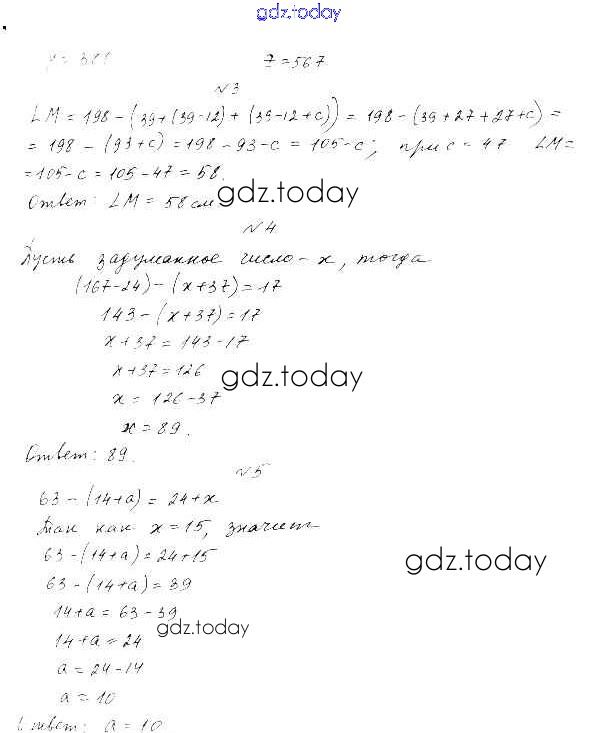 gdz.today
z = 567
N3
LM = 198 - (39+(39-12) + (39-12+c)) = 198 - (39+27+27+c) =
= 198 - (93+c) = 198 - 93 - c = 105 - c; при c = 47 LM =
= 105 - c = 105 - 47 = 58.
Ответ: LM = 58 см
gdz.today
N4
Пусть задуманное число - x, тогда
(167-24) - (x+37) = 17
143 - (x+37) = 17
x+37 = 143-17
x+37 = 126
gdz.today
x = 126-37
x = 89.
Ответ: 89.
N5
63 - (14+a) = 24+x
Так как x = 15, значит
63 - (14+a) = 24+15
gdz.today
63 - (14+a) = 39
14+a = 63-39
gdz.today
14+a = 24
a = 24-14
a = 10
Ответ: a = 10